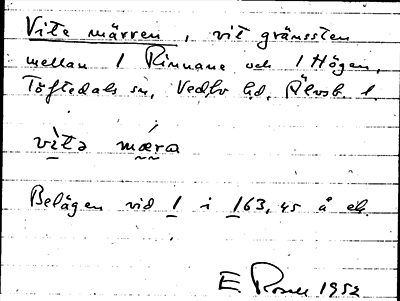 Vita märren, vit gränssten
mellan 1 Rinnane och 1 Högen,
Töftedals sn, Vedbo hd, Älvsb. l.
vìtə mǽra
Belägen vid 1 i 163,45 å ek.
E. Rosell 1952